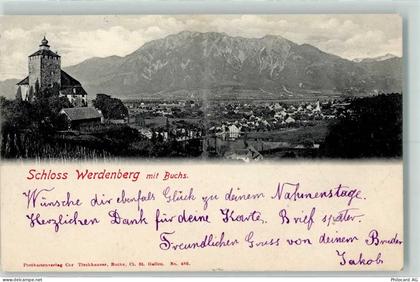 Schloss Werdenberg mit Buchs.
Wünsche dir ebenfals Glück zu deinem Nahmenstage.
Herzlichen Dank für deine Karte, Brief später.
Freundlichen Gruss von deinem Bruder
Jakob
Postkartenverlag Chr Tischhauser, Buchs, Ct. St. Gallen. No.